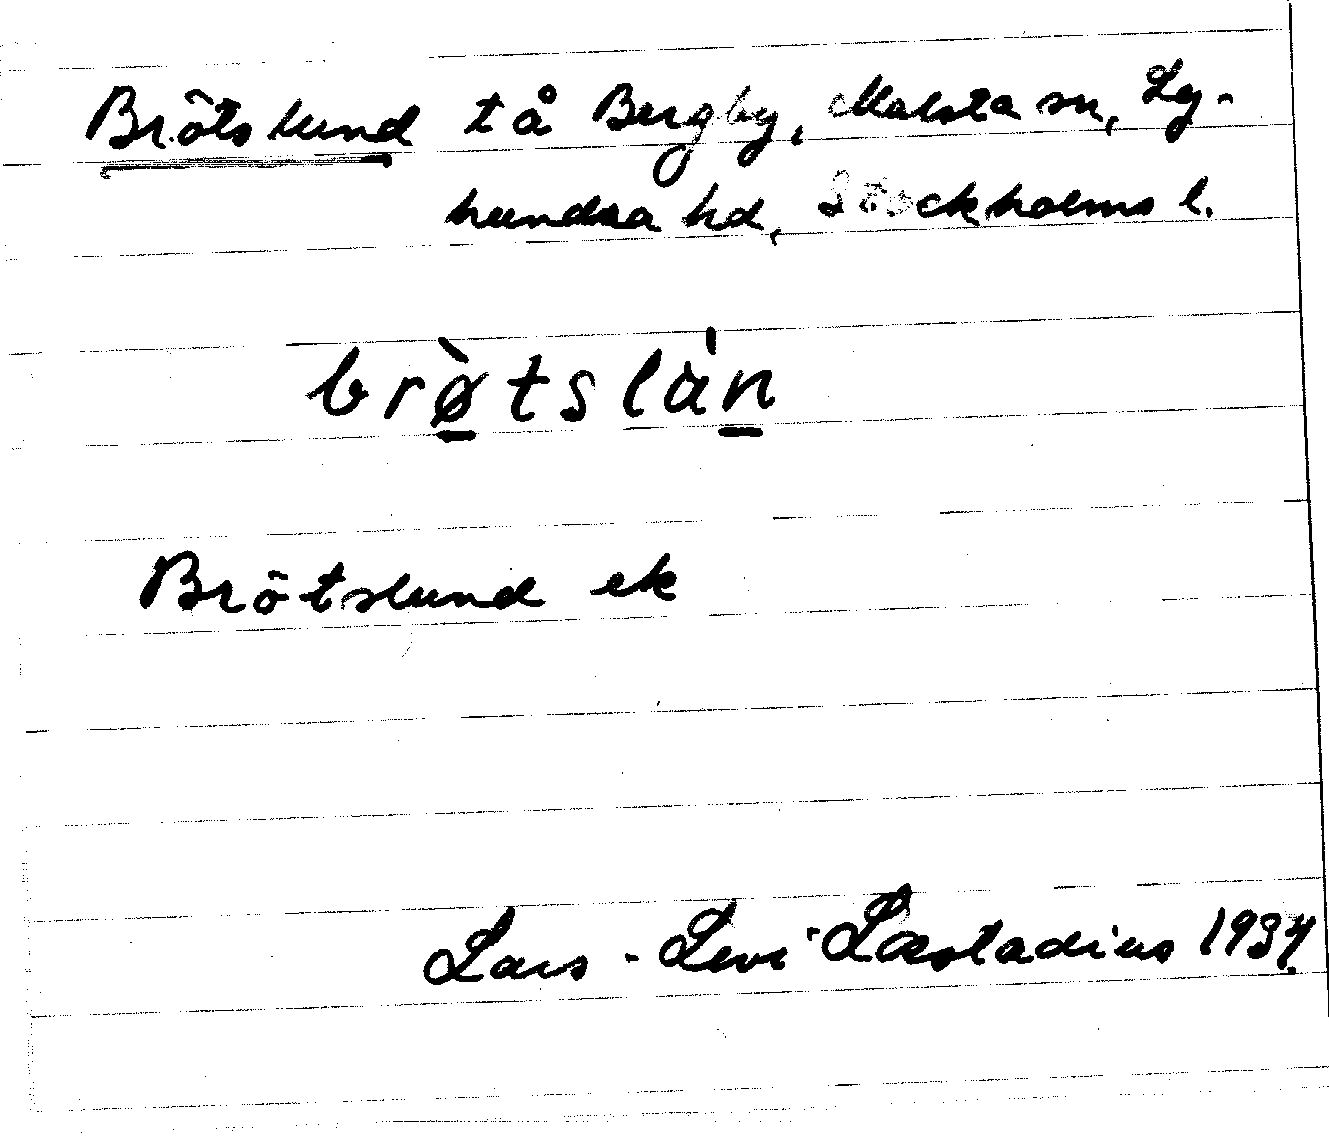 Brötslund tå Bergby, Malsta sn, Ly-
hundra hd, Stockholms l.
brø̀tslàn
Brötslund ek
Lars-Levi Læstadius 1934